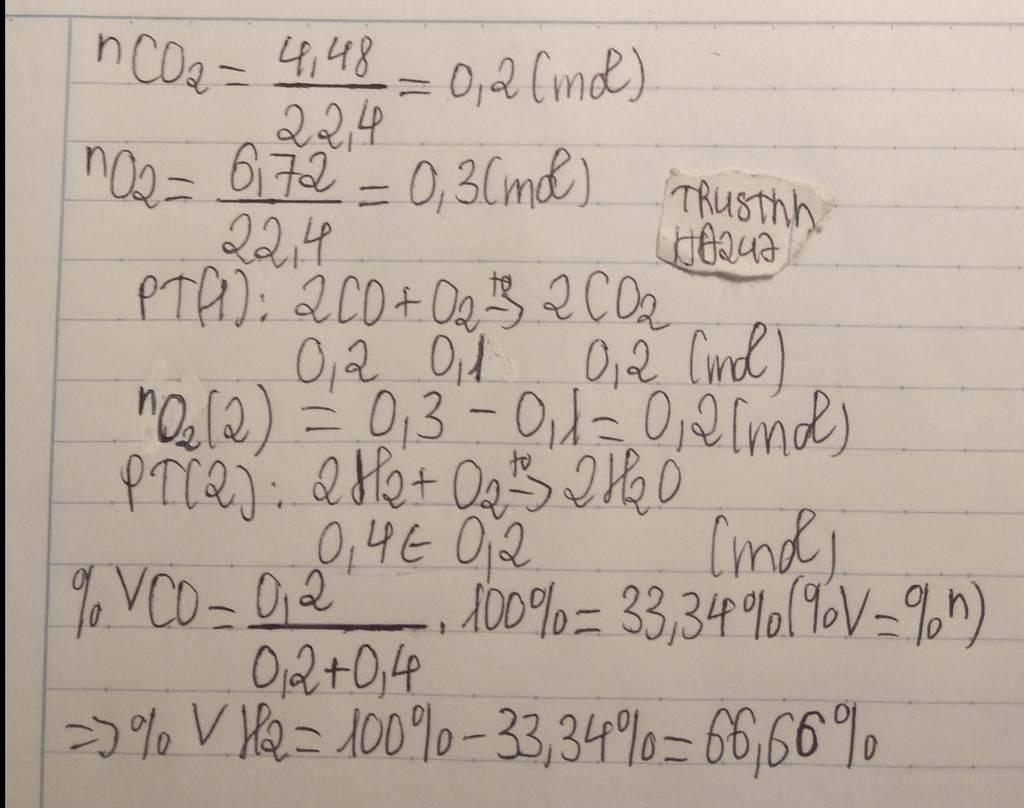 nCO2 = 4,48 / 22,4 = 0,2 (mol)
nO2 = 6,72 / 22,4 = 0,3 (mol)
TRUSThh
HA247
PT(1): 2CO + O2 tº→ 2CO2
0,2 0,1 0,2 (mol)
nO2(2) = 0,3 - 0,1 = 0,2 (mol)
PT(2): 2H2 + O2 tº→ 2H2O
0,4 ← 0,2 (mol)
% VCO = 0,2 / 0,2+0,4 . 100% = 33,34% (%V = %n)
=> % VH2 = 100% - 33,34% = 66,66%